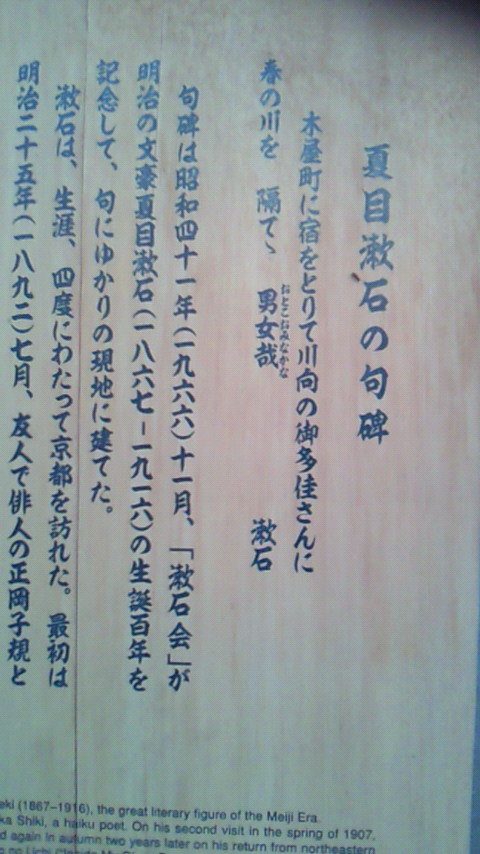 夏目漱石の句碑
木屋町に宿をとりて川向の御多佳さんに
春の川を　隔てゝ　男女哉
おとこおみなかな
漱石
句碑は昭和四十一年（一九六六）十一月、「漱石会」が
明治の文豪夏目漱石（一八六七－一九一六）の生誕百年を
記念して、句にゆかりの現地に建てた。
漱石は、生涯、四度にわたって京都を訪れた。最初は
明治二十五年（一八九二）七月、友人で俳人の正岡子規と
eki (1867–1916), the great literary figure of the Meiji Era.
ka Shiki, a haiku poet. On his second visit in the spring of 1907,
d again in autumn two years later on his return from northeastern